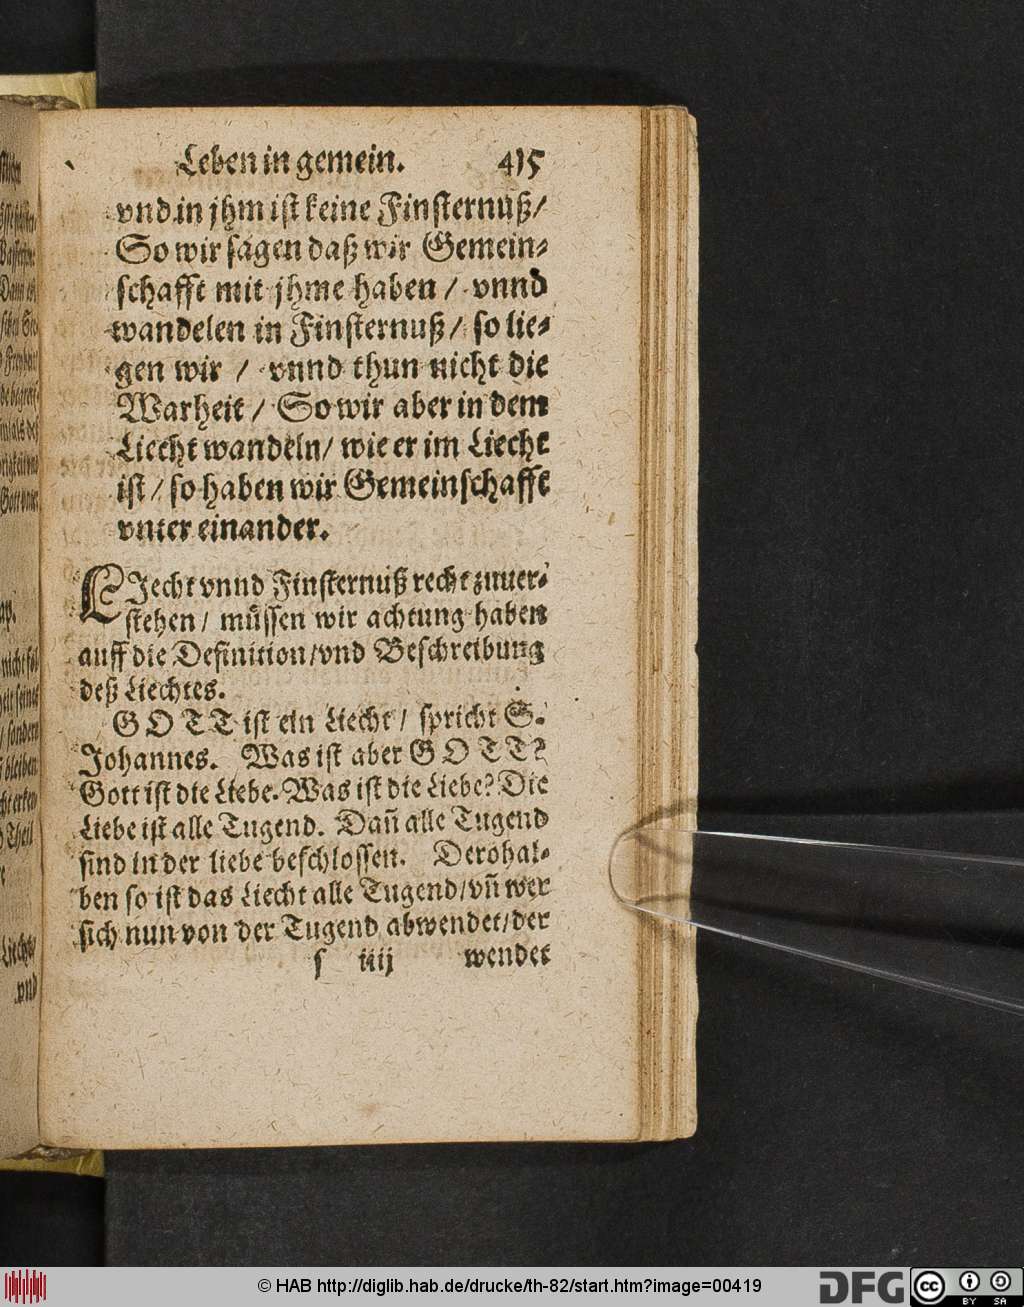 Leben in gemein. 415
vnd in jhm ist keine Finsternuß/
So wir sagen daß wir Gemein⸗
schafft mit jhme haben / vnnd
wandelen in Finsternuß/ so lie⸗
gen wir / vnnd thun nicht die
Warheit / So wir aber in dem
Liecht wandeln/ wie er im Liecht
ist / so haben wir Gemeinschafft
vnter einander.
LJecht vnnd Finsternuß recht zuuer⸗
stehen / müssen wir achtung haben
auff die Definition/vnd Beschreibung
deß Liechtes.
GOTT ist ein Liecht / spricht S.
Johannes. Was ist aber GOTT?
Gott ist die Liebe. Was ist die Liebe? Die
Liebe ist alle Tugend. Dañ alle Tugend
sind in der liebe beschlossen. Derohal⸗
ben so ist das Liecht alle Tugend/vñ wer
sich nun von der Tugend abwendet/der
s iiij wendet
© HAB http://diglib.hab.de/drucke/th-82/start.htm?image=00419
DFG
cc BY SA